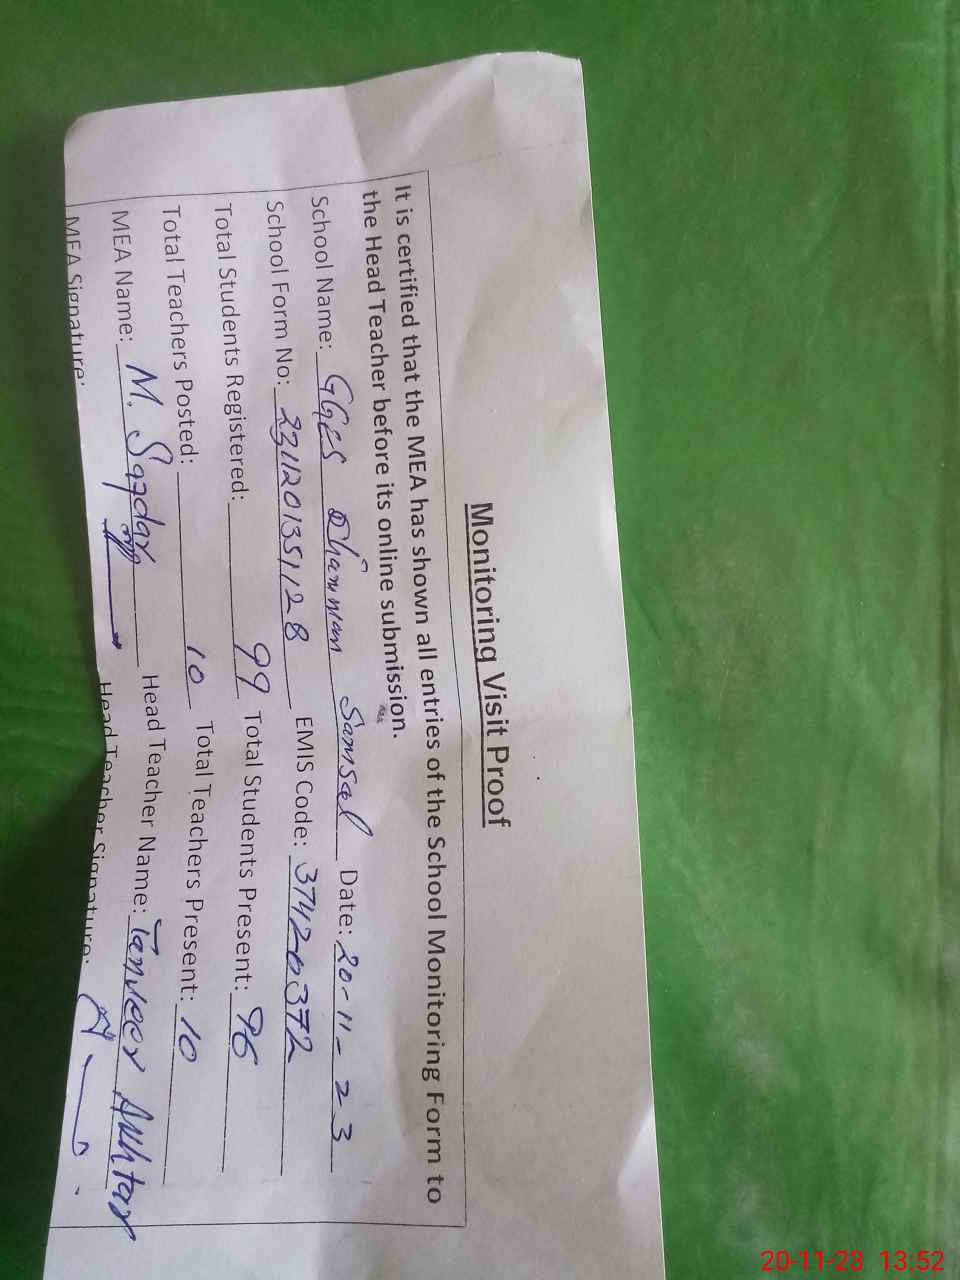 Monitoring Visit Proof
It is certified that the MEA has shown all entries of the School Monitoring Form to
the Head Teacher before its online submission.
School Name: GGES Dhamman Samsal Date: 20-11-23
School Form No: 231120135128 EMIS Code: 37420372
Total Students Registered: 99 Total Students Present: 96
Total Teachers Posted: 10 Total Teachers Present: 10
MEA Name: M. Safdar Head Teacher Name: Tanveer Akhtar
MEA Signature: Head Teacher Signature:
20-11-23 13:52